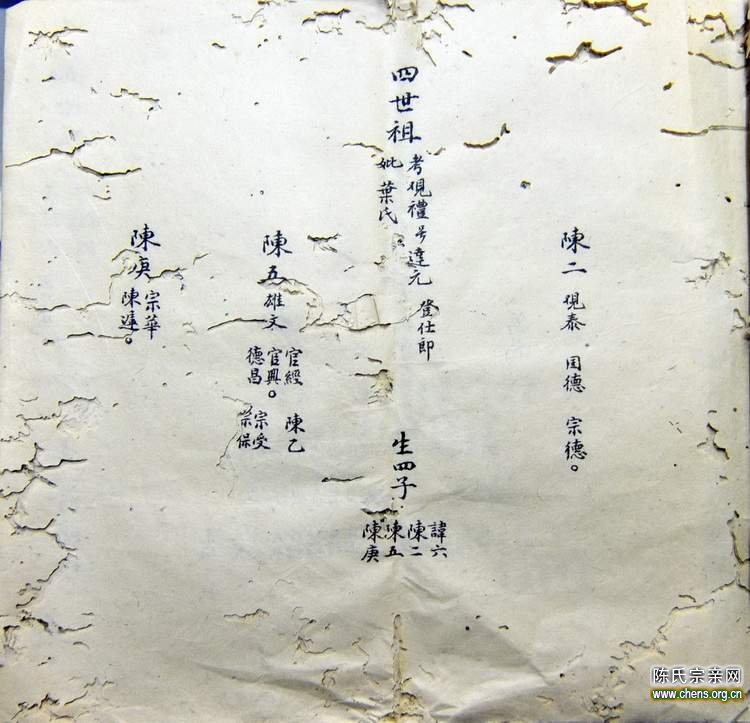 陳二 硯泰 国德 宗德。
四世祖
考硯禮号達元 登仕郎
妣葉氏
生四子
諱六
陳二
陳五
陳庚
陳五雄文
官經
官興。
德昌
陳乙
宗受
宗保
陳庚
宗華
陳進。
陈氏宗亲网
www.chens.org.cn